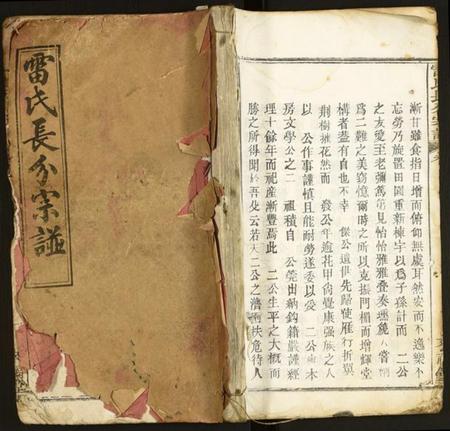 雷氏長分宗譜
漸甘雖食指日增而俯仰無虞耳然安而不逸樂不
忘勞乃旋置田園重新棟宇以爲子孫計而 二公
之友愛至老彌篤第見怡怡雅雅疊奏壎篪
爲二難之美竊憶爾時之所以克振門楣而增輝堂
構者蓋有自也不幸 傑公遺伊先歸使雁行折翼
荆樹摧花然而 發公年逾花甲尚覺康强族之人
以 公作事謹慎且能耐勞遂委以受 二公 木
房文學公之二 祖積自 公筦出納鈎籍嚴謹經
理十餘年而祀產漸豐焉此 二公生平之大概而
勝之所得聞於吾父云若夫二公之濟 扶危待人